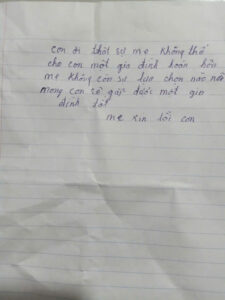 con ơi thật sự mẹ không thể
cho con một gia đình hoàn hảo
mẹ không còn sự lựa chọn nào nên
mong con sẽ gặp được một gia
đình tốt
mẹ xin lỗi con